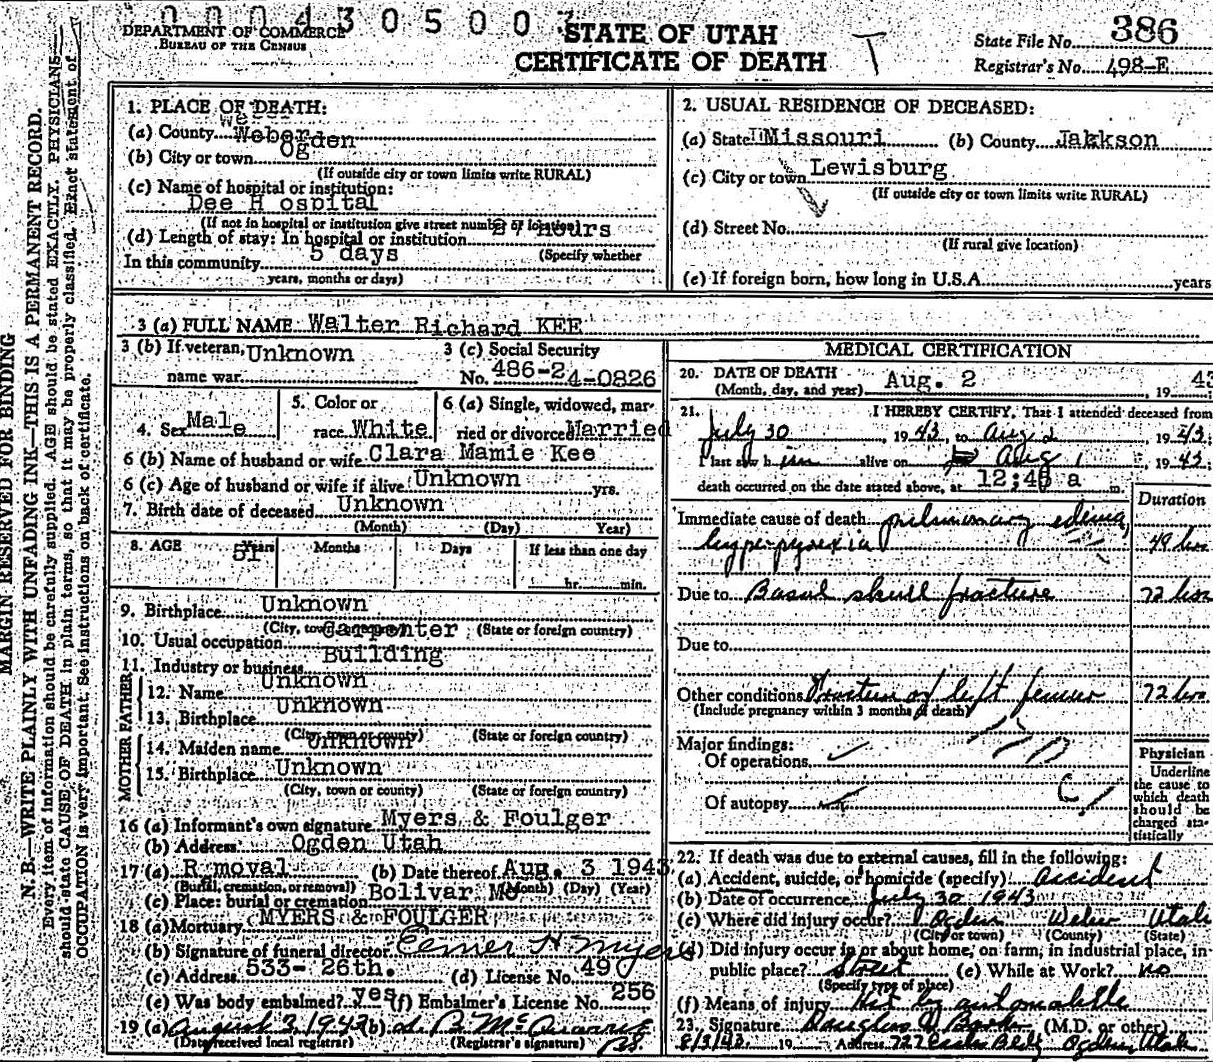 0 0 0 4 3 0 5 0 0
DEPARTMENT OF COMMERCE
BUREAU OF THE CENSUS
STATE OF UTAH
CERTIFICATE OF DEATH
T
State File No. 386
Registrar's No. 498-E
MARGIN RESERVED FOR BINDING
N. B.—WRITE PLAINLY WITH UNFADING INK—THIS IS A PERMANENT RECORD.
Every item of information should be carefully supplied. AGE should be stated EXACTLY. PHYSICIANS
should state CAUSE OF DEATH in plain terms, so that it may be properly classified. Exact statement of
OCCUPATION is very important. See instructions on back of certificate.
1. PLACE OF DEATH:
(a) County Weber
(b) City or town Ogden
(If outside city or town limits write RURAL)
(c) Name of hospital or institution:
Dee H ospital
(If not in hospital or institution give street number or location)
(d) Length of stay: In hospital or institution hours
(Specify whether
In this community 5 days
years, months or days)
2. USUAL RESIDENCE OF DECEASED:
(a) State Missouri (b) County Jakkson
(c) City or town Lewisburg
(If outside city or town limits write RURAL)
(d) Street No.
(If rural give location)
(e) If foreign born, how long in U.S.A. years
3 (a) FULL NAME Walter Richard KEE
3 (b) If veteran, name war Unknown
3 (c) Social Security No. 486-24-0826
4. Sex Male
5. Color or race White
6 (a) Single, widowed, married or divorced Married
6 (b) Name of husband or wife Clara Mamie Kee
6 (c) Age of husband or wife if alive Unknown yrs.
7. Birth date of deceased Unknown
(Month) (Day) Year)
8. AGE Years 51 Months Days If less than one day
hr. min.
9. Birthplace Unknown
(City, town or county) (State or foreign country)
10. Usual occupation Carpenter
11. Industry or business Building
FATHER
12. Name Unknown
13. Birthplace Unknown
(City, town or county) (State or foreign country)
MOTHER
14. Maiden name Unknown
15. Birthplace Unknown
(City, town or county) (State or foreign country)
16 (a) Informant's own signature Myers & Foulger
(b) Address Ogden Utah
17 (a) R moval (b) Date thereof Aug. 3 1943
(Burial, cremation, or removal) (Month) (Day) (Year)
(c) Place: burial or cremation Bolivar Mo
18 (a) Mortuary MYERS & FOULGER
(b) Signature of funeral director Elmer H Myers
(c) Address 533- 26th. (d) License No. 490
(e) Was body embalmed? yes (f) Embalmer's License No. 256
19 (a) August 3, 1943 (b)
(Date received local registrar) (Registrar's signature)
MEDICAL CERTIFICATION
20. DATE OF DEATH
(Month, day, and year) Aug. 2 19 43
21. I HEREBY CERTIFY, That I attended deceased from
July 30, 1943, to Aug 2, 1943;
I last saw him alive on Aug 1, 1943;
death occurred on the date stated above, at 12:45 a m.
Duration
Immediate cause of death pulmonary edema,
hyperpyrexia 48 hrs
Due to Basal skull fracture 72 hrs
Due to
Other conditions Fracture of left femur 72 hrs
(Include pregnancy within 3 months of death)
Major findings:
Of operations
Of autopsy
Physician
Underline
the cause to
which death
should be
charged sta-
tistically
22. If death was due to external causes, fill in the following:
(a) Accident, suicide, or homicide (specify) accident
(b) Date of occurrence July 30 1943
(c) Where did injury occur? Ogden Weber Utah
(City or town) (County) (State)
(d) Did injury occur in or about home, on farm, in industrial place, in
public place? street (e) While at Work? no
(Specify type of place)
(f) Means of injury Hit by automobile
23. Signature (M.D. or other)
8/3/43 19 Address 727 Eccles Bldg Ogden, Utah